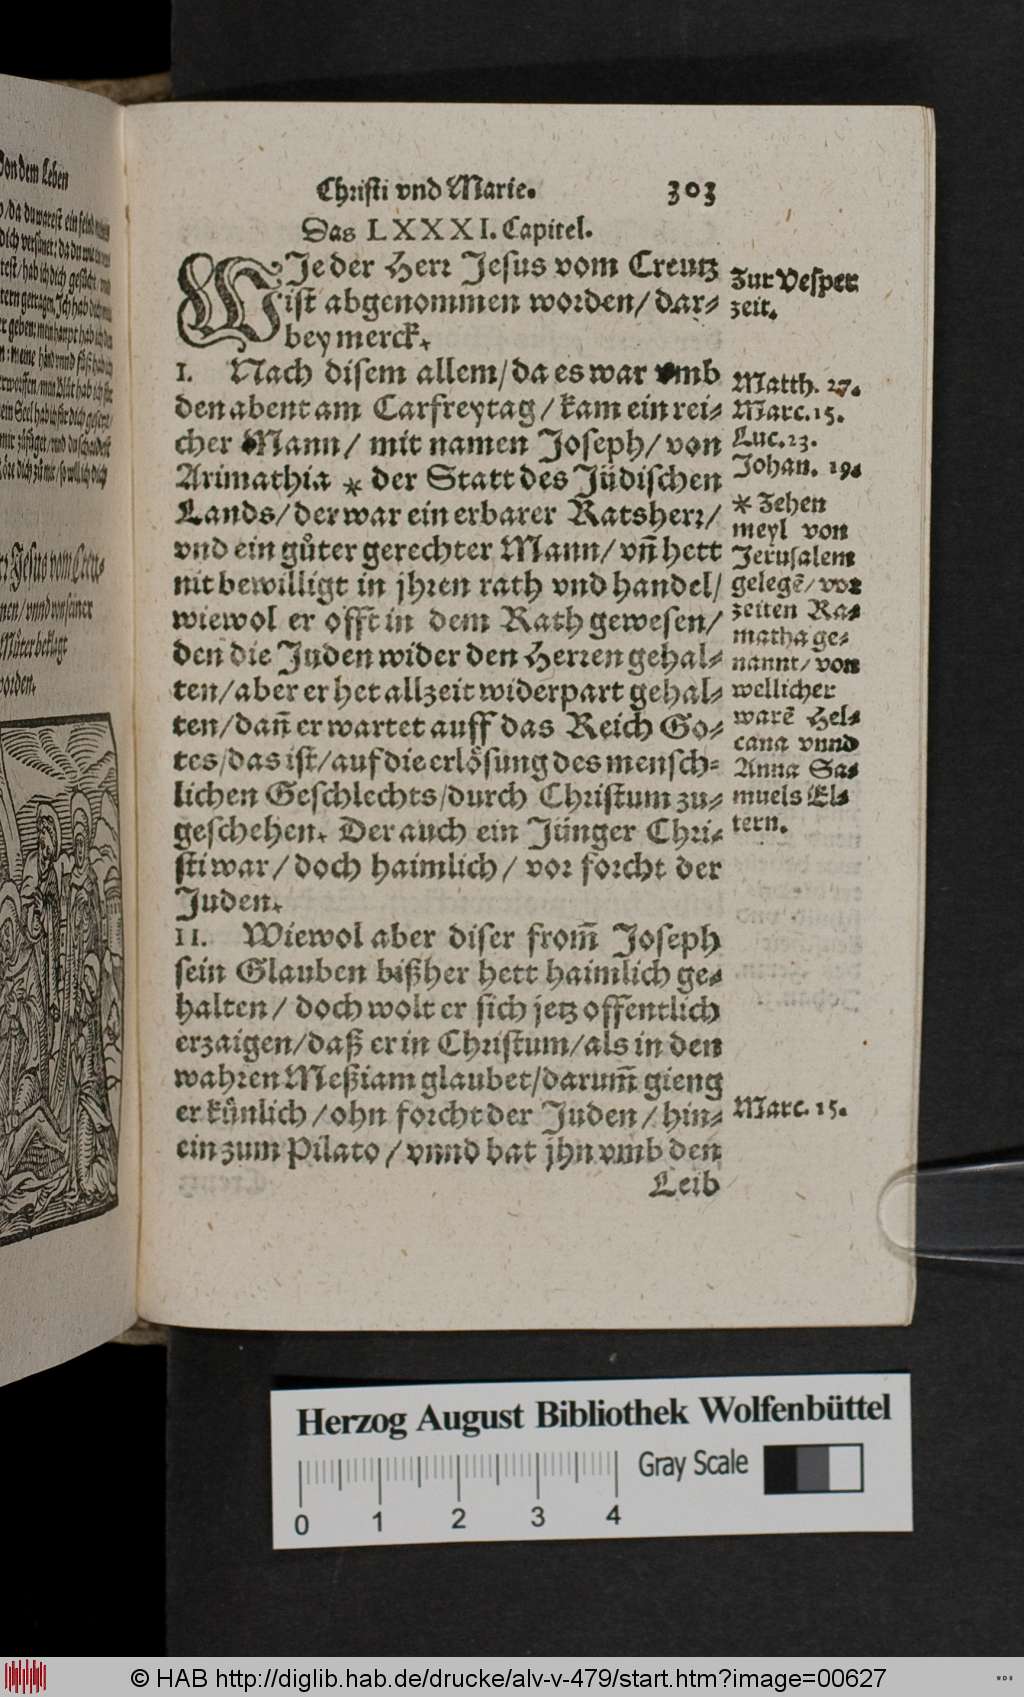 Von dem Leben
Christi vnd Marie. 303
Das LXXXI. Capitel.
WJe der Herr Jesus vom Creutz
ist abgenommen worden/ dar⸗
bey merck.
Zur Vesper
zeit.
I. Nach disem allem/ da es war vmb
den abent am Carfreytag/ kam ein rei⸗
cher Mann/ mit namen Joseph/ von
Arimathia * der Statt des Jüdischen
Lands/ der war ein erbarer Ratsherr/
vnd ein gůter gerechter Mann/ vñ hett
nit bewilligt in jhren rath vnd handel/
wiewol er offt in dem Rath gewesen/
den die Juden wider den Herren gehal⸗
ten/ aber er het allzeit widerpart gehal⸗
ten/ dañ er wartet auff das Reich Go⸗
tes/ das ist/ auf die erlösung des mensch⸗
lichen Geschlechts/ durch Christum zu⸗
geschehen. Der auch ein Jünger Chri⸗
sti war/ doch haimlich/ vor forcht der
Juden.
Matth. 27.
Marc. 15.
Luc. 23.
Johan. 19.
* Zehen
meyl von
Jerusalem
gelegē/ vor
zeiten Ra⸗
matha ge⸗
nannt/ von
wellicher
warē Hel⸗
cana vnnd
Anna Sa⸗
muels El⸗
tern.
II. Wiewol aber diser from̄ Joseph
sein Glauben bißher hett haimlich ge⸗
halten/ doch wolt er sich jetz offentlich
erzaigen/ daß er in Christum/ als in den
wahren Meßiam glaubet/ darum̄ gieng
er kůnlich/ ohn forcht der Juden/ hin⸗
ein zum Pilato/ vnnd bat jhn vmb den
Leib
Marc. 15.
Herzog August Bibliothek Wolfenbüttel
Gray Scale
0 1 2 3 4
© HAB http://diglib.hab.de/drucke/alv-v-479/start.htm?image=00627